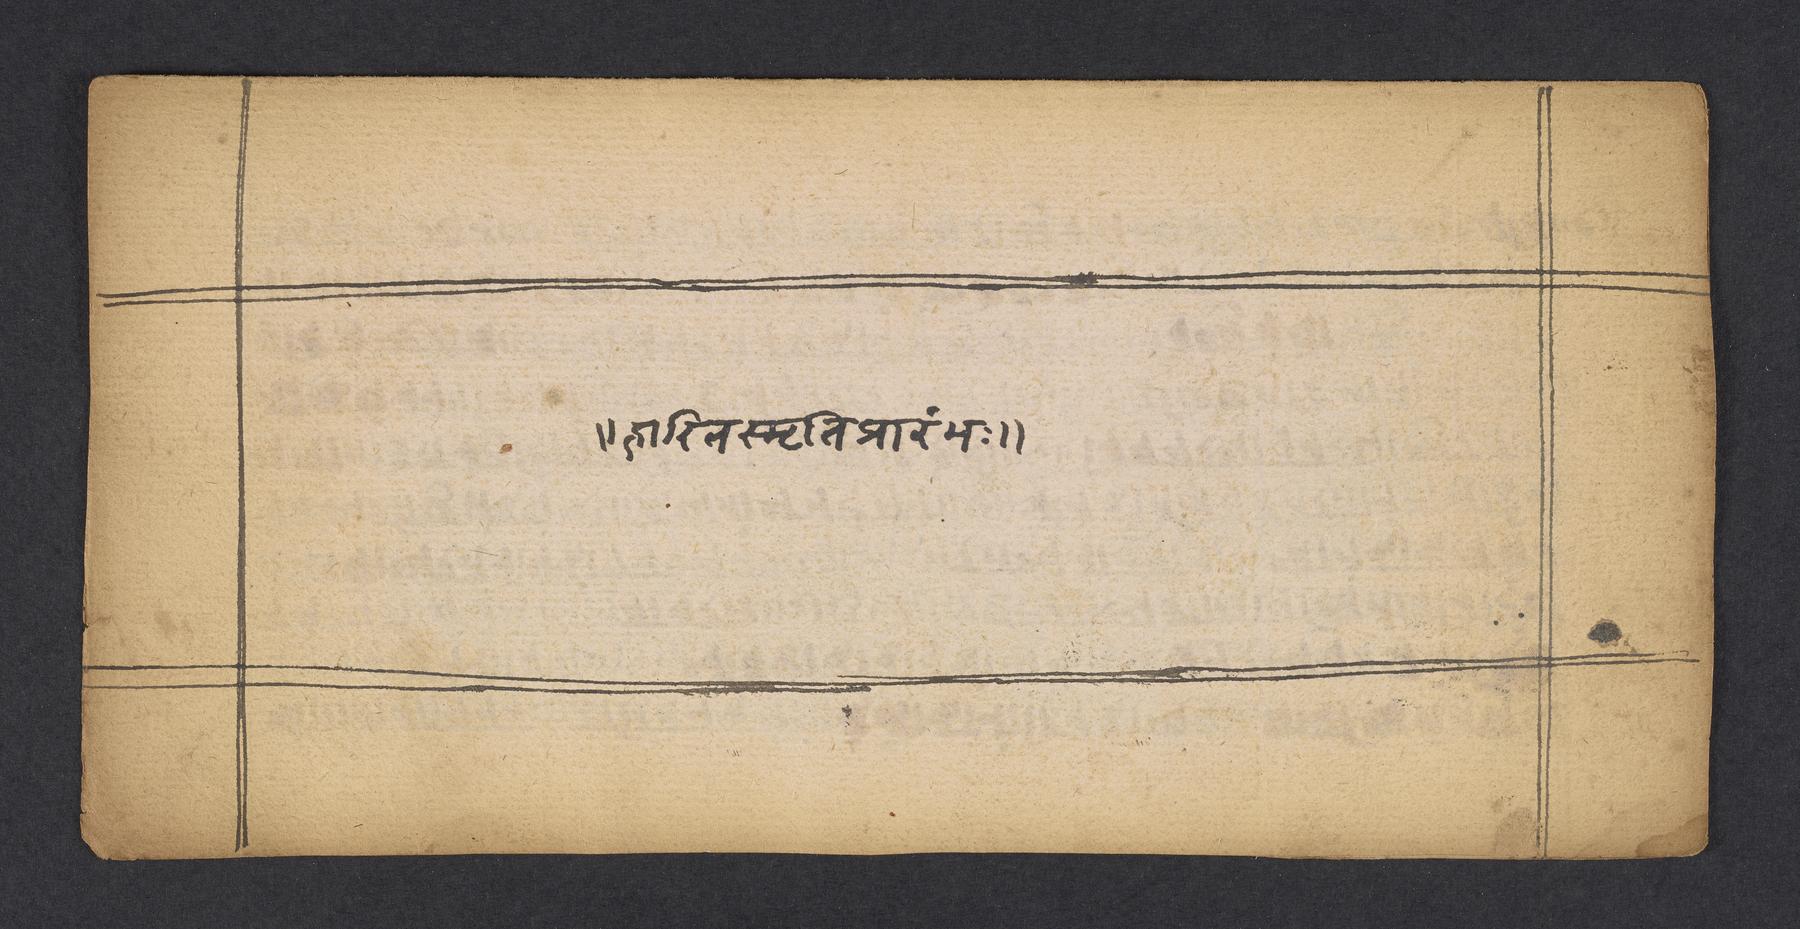 ॥हारितस्मृतिप्रारंभः॥